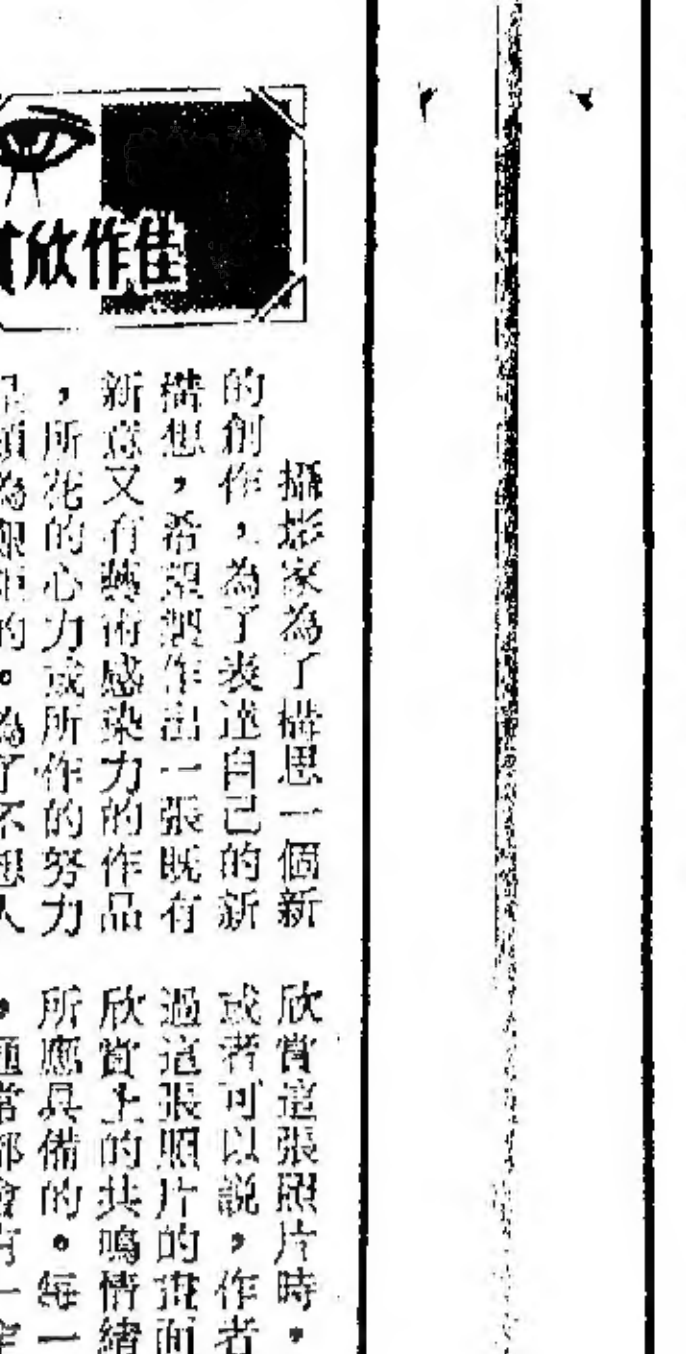 佳作欣賞
攝影家為了構思一個新
的創作，為了表達自己的新
構想，希望製作出一張既有
新意又有藝術感染力的作品
，所花的心力或所作的努力
是頗為艱鉅的。為了不想人
欣賞這張照片時，
或者可以說，作者
過這張照片的畫面
欣賞上的共鳴情緒
所應具備的。每一
，通常都會有一定